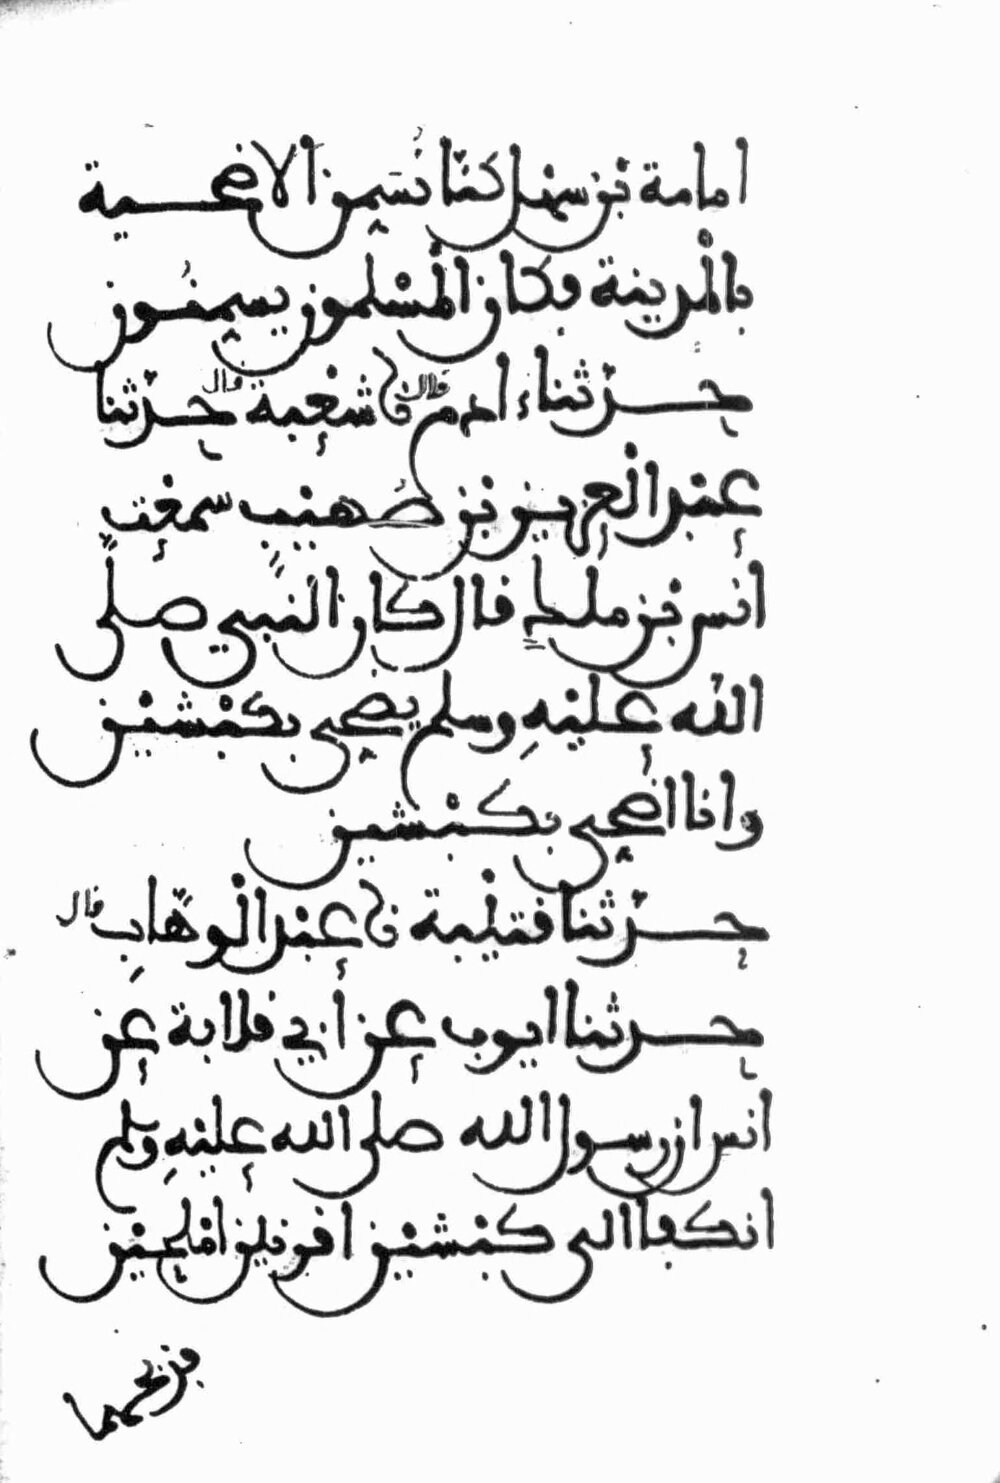 امامة بن سهل كنا نسمن الاضحية
بالمدينة وكان المسلمون يسمنون
حدثناء ادم قال نا شعبة قال حدثنا
عبد العزيز بن صهيب سمعت
انس بن ملك قال كان النبي صلى
الله عليه وسلم يضحي بكبشين
وانا اضحي بكبشين
حدثنا قتيبة نا عبد الوهاب قال
حدثنا ايوب عن ابي قلابة عن
انس ان رسول الله صلى الله عليه وسلم
انكفا الى كبشين اقرنين املحين
فذبحهما